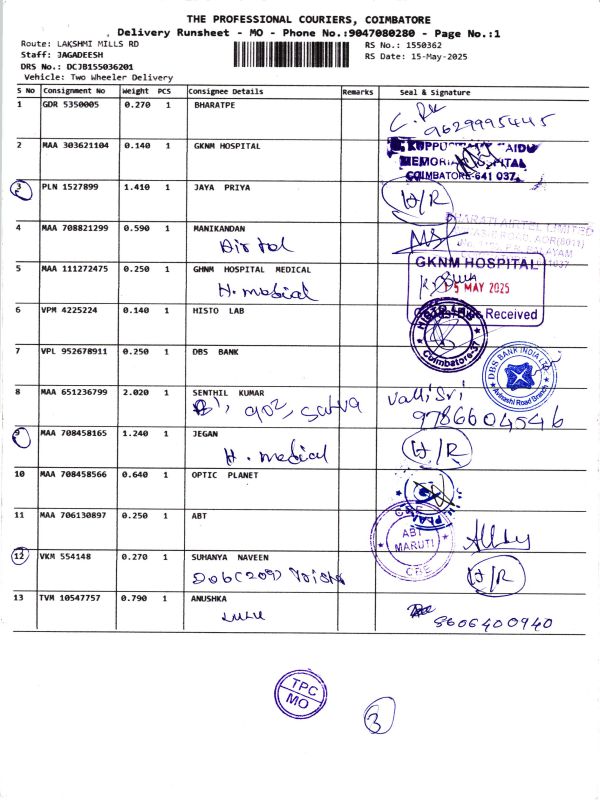 THE PROFESSIONAL COURIERS, COIMBATORE
Delivery Runsheet - MO - Phone No.:9047080280 - Page No.:1
Route: LAKSHMI MILLS RD RS No.: 1550362
Staff: JAGADEESH RS Date: 15-May-2025
DRS No.: DCJB155036201
Vehicle: Two Wheeler Delivery
S No Consignment No Weight PCS Consignee Details Remarks Seal & Signature
1 GDR 5350005 0.270 1 BHARATPE
9629995445
2 MAA 303621104 0.140 1 GKNM HOSPITAL
MEMORIAL HOSPITAL
COIMBATORE-641 037
3 PLN 1527899 1.410 1 JAYA PRIYA H/R
4 MAA 708821299 0.590 1 MANIKANDAN
Airtel
BHARATI AIRTEL LIMITED
5 MAA 111272475 0.250 1 GHNM HOSPITAL MEDICAL
H. medical
GKNM HOSPITAL
15 MAY 2025
Received
6 VPM 4225224 0.140 1 HISTO LAB
HISTO LAB
Coimbatore-37
7 VPL 952678911 0.250 1 DBS BANK
DBS BANK INDIA LTD
Avinashi Road Branch
8 MAA 651236799 2.020 1 SENTHIL KUMAR
902, Satva
Valli Sri
9786604546
9 MAA 708458165 1.240 1 JEGAN
H. medical
H/R
10 MAA 708458566 0.640 1 OPTIC PLANET
11 MAA 706130897 0.250 1 ABT
ABT
MARUTI
12 VKM 554148 0.270 1 SUHANYA NAVEEN
H/R
13 TVM 10547757 0.790 1 ANUSHKA
LULU
8606400940
TPC
MO
3